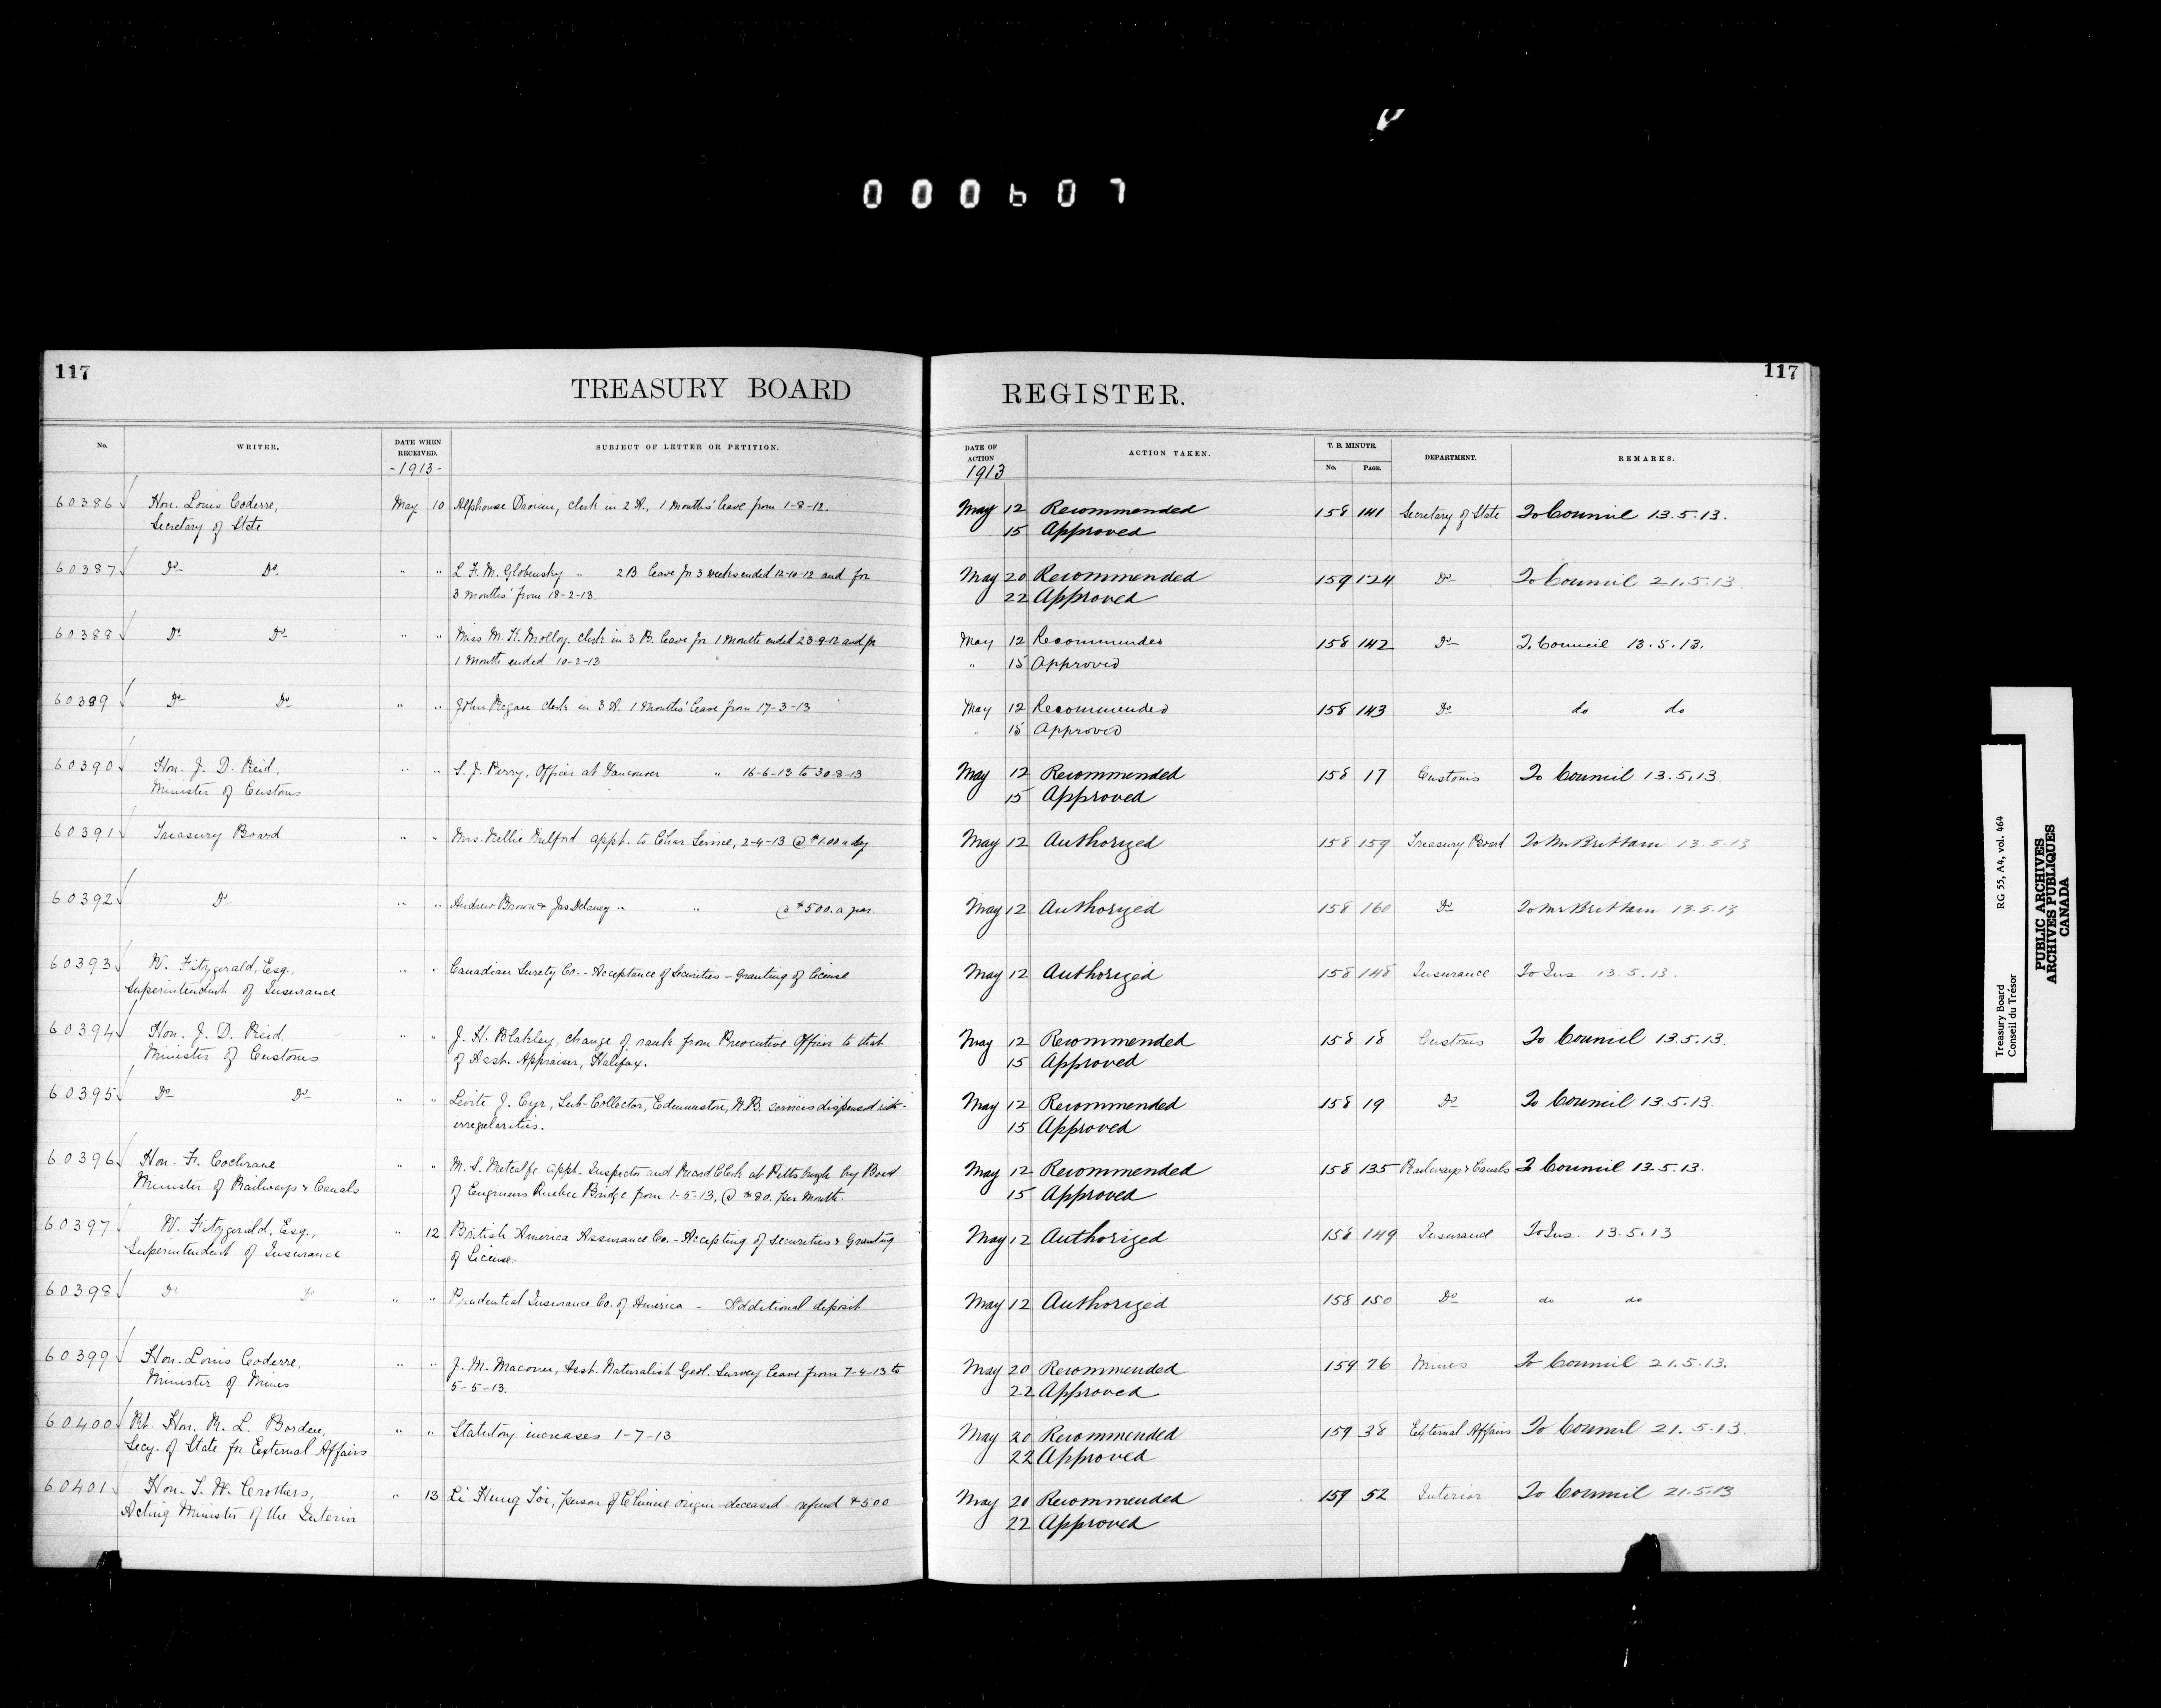 000607
117
TREASURY BOARD
REGISTER.
117
No.
WRITER.
DATE WHEN RECEIVED.
-1913-
SUBJECT OF LETTER OR PETITION.
DATE OF ACTION
1913
ACTION TAKEN.
T. B. MINUTE.
No.
PAGE.
DEPARTMENT.
REMARKS.
60386 Hon. Louis Coderre, May 10 Alphonse Drouin, clerk in 2 A., 1 Months' leave from 1-8-12. May 12 Recommended 158 141 Secretary of State To Council 13.5.13.
Secretary of State 15 Approved
60387 Do Do " " L. F. M. Globensky " 2B leave for 3 weeks ended 12-10-12 and for May 20 Recommended 159 124 Do To Council 21.5.13.
3 Months' from 18-2-13. 22 Approved
60388 Do Do " " Miss M. K. Molloy, clerk in 3 B. leave for 1 Month ended 23-9-12 and for May 12 Recommended 158 142 Do To Council 13.5.13.
1 Month ended 10-2-13 " 15 Approved
60389 Do Do " " John Regan clerk in 3 A. 1 Months' leave from 17-3-13 May 12 Recommended 158 143 Do do do
" 15 Approved
60390 Hon. J. D. Reid, " " S. J. Perry, Officer at Vancouver " 16-6-13 to 30-8-13 May 12 Recommended 158 17 Customs To Council 13.5.13.
Minister of Customs 15 Approved
60391 Treasury Board " " Mrs. Nellie Milford appt. to Char Service, 2-4-13 @ $1.00 a day May 12 Authorized 158 159 Treasury Board To Mr Brittain 13.5.13
60392 Do " " Andrew Brown & Jas Delaney " " @ $500. a year May 12 Authorized 158 160 Do To Mr Brittain 13.5.13
60393 W. Fitzgerald, Esq., " " Canadian Surety Co. - Acceptance of Securities - Granting of license May 12 Authorized 158 148 Insurance To Ins 13.5.13.
Superintendent of Insurance
60394 Hon. J. D. Reid, " " J. H. Blakley, change of rank from Preventive Officer to that May 12 Recommended 158 18 Customs To Council 13.5.13.
Minister of Customs of Asst. Appraiser, Halifax. 15 Approved
60395 Do Do " " Levite J. Cyr, Sub-Collector, Edmunston, N.B. services dispensed with - May 12 Recommended 158 19 Do To Council 13.5.13.
irregularities. 15 Approved
60396 Hon. F. Cochrane " " M. S. Metcalfe appt. Inspector and Record Clerk at Pittsburgh by Board May 12 Recommended 158 135 Railways & Canals To Council 13.5.13.
Minister of Railways & Canals of Engineers Quebec Bridge from 1-5-13, @ $80. per Month. 15 Approved
60397 W. Fitzgerald, Esq., " 12 British America Assurance Co. - Accepting of Securities & Granting May 12 Authorized 158 149 Insurance To Ins. 13.5.13
Superintendent of Insurance of License.
60398 Do Do " " Prudential Insurance Co. of America - Additional deposit May 12 Authorized 158 150 Do do do
60399 Hon. Louis Coderre, " " J. M. Macoun, Asst. Naturalist Geol. Survey leave from 7-4-13 to May 20 Recommended 159 76 Mines To Council 21.5.13.
Minister of Mines 5-5-13. 22 Approved
60400 Rt. Hon. R. L. Borden, " " Statutory increases 1-7-13 May 20 Recommended 159 38 External Affairs To Council 21.5.13.
Secy. of State for External Affairs 22 Approved
60401 Hon. T. W. Crothers, " 13 Li Hung Toi, person of Chinese origin - deceased - refund $500 May 20 Recommended 159 52 Interior To Council 21.5.13
Acting Minister of the Interior 22 Approved
Treasury Board RG 55, A4, vol. 464
Conseil du Trésor
PUBLIC ARCHIVES
ARCHIVES PUBLIQUES
CANADA